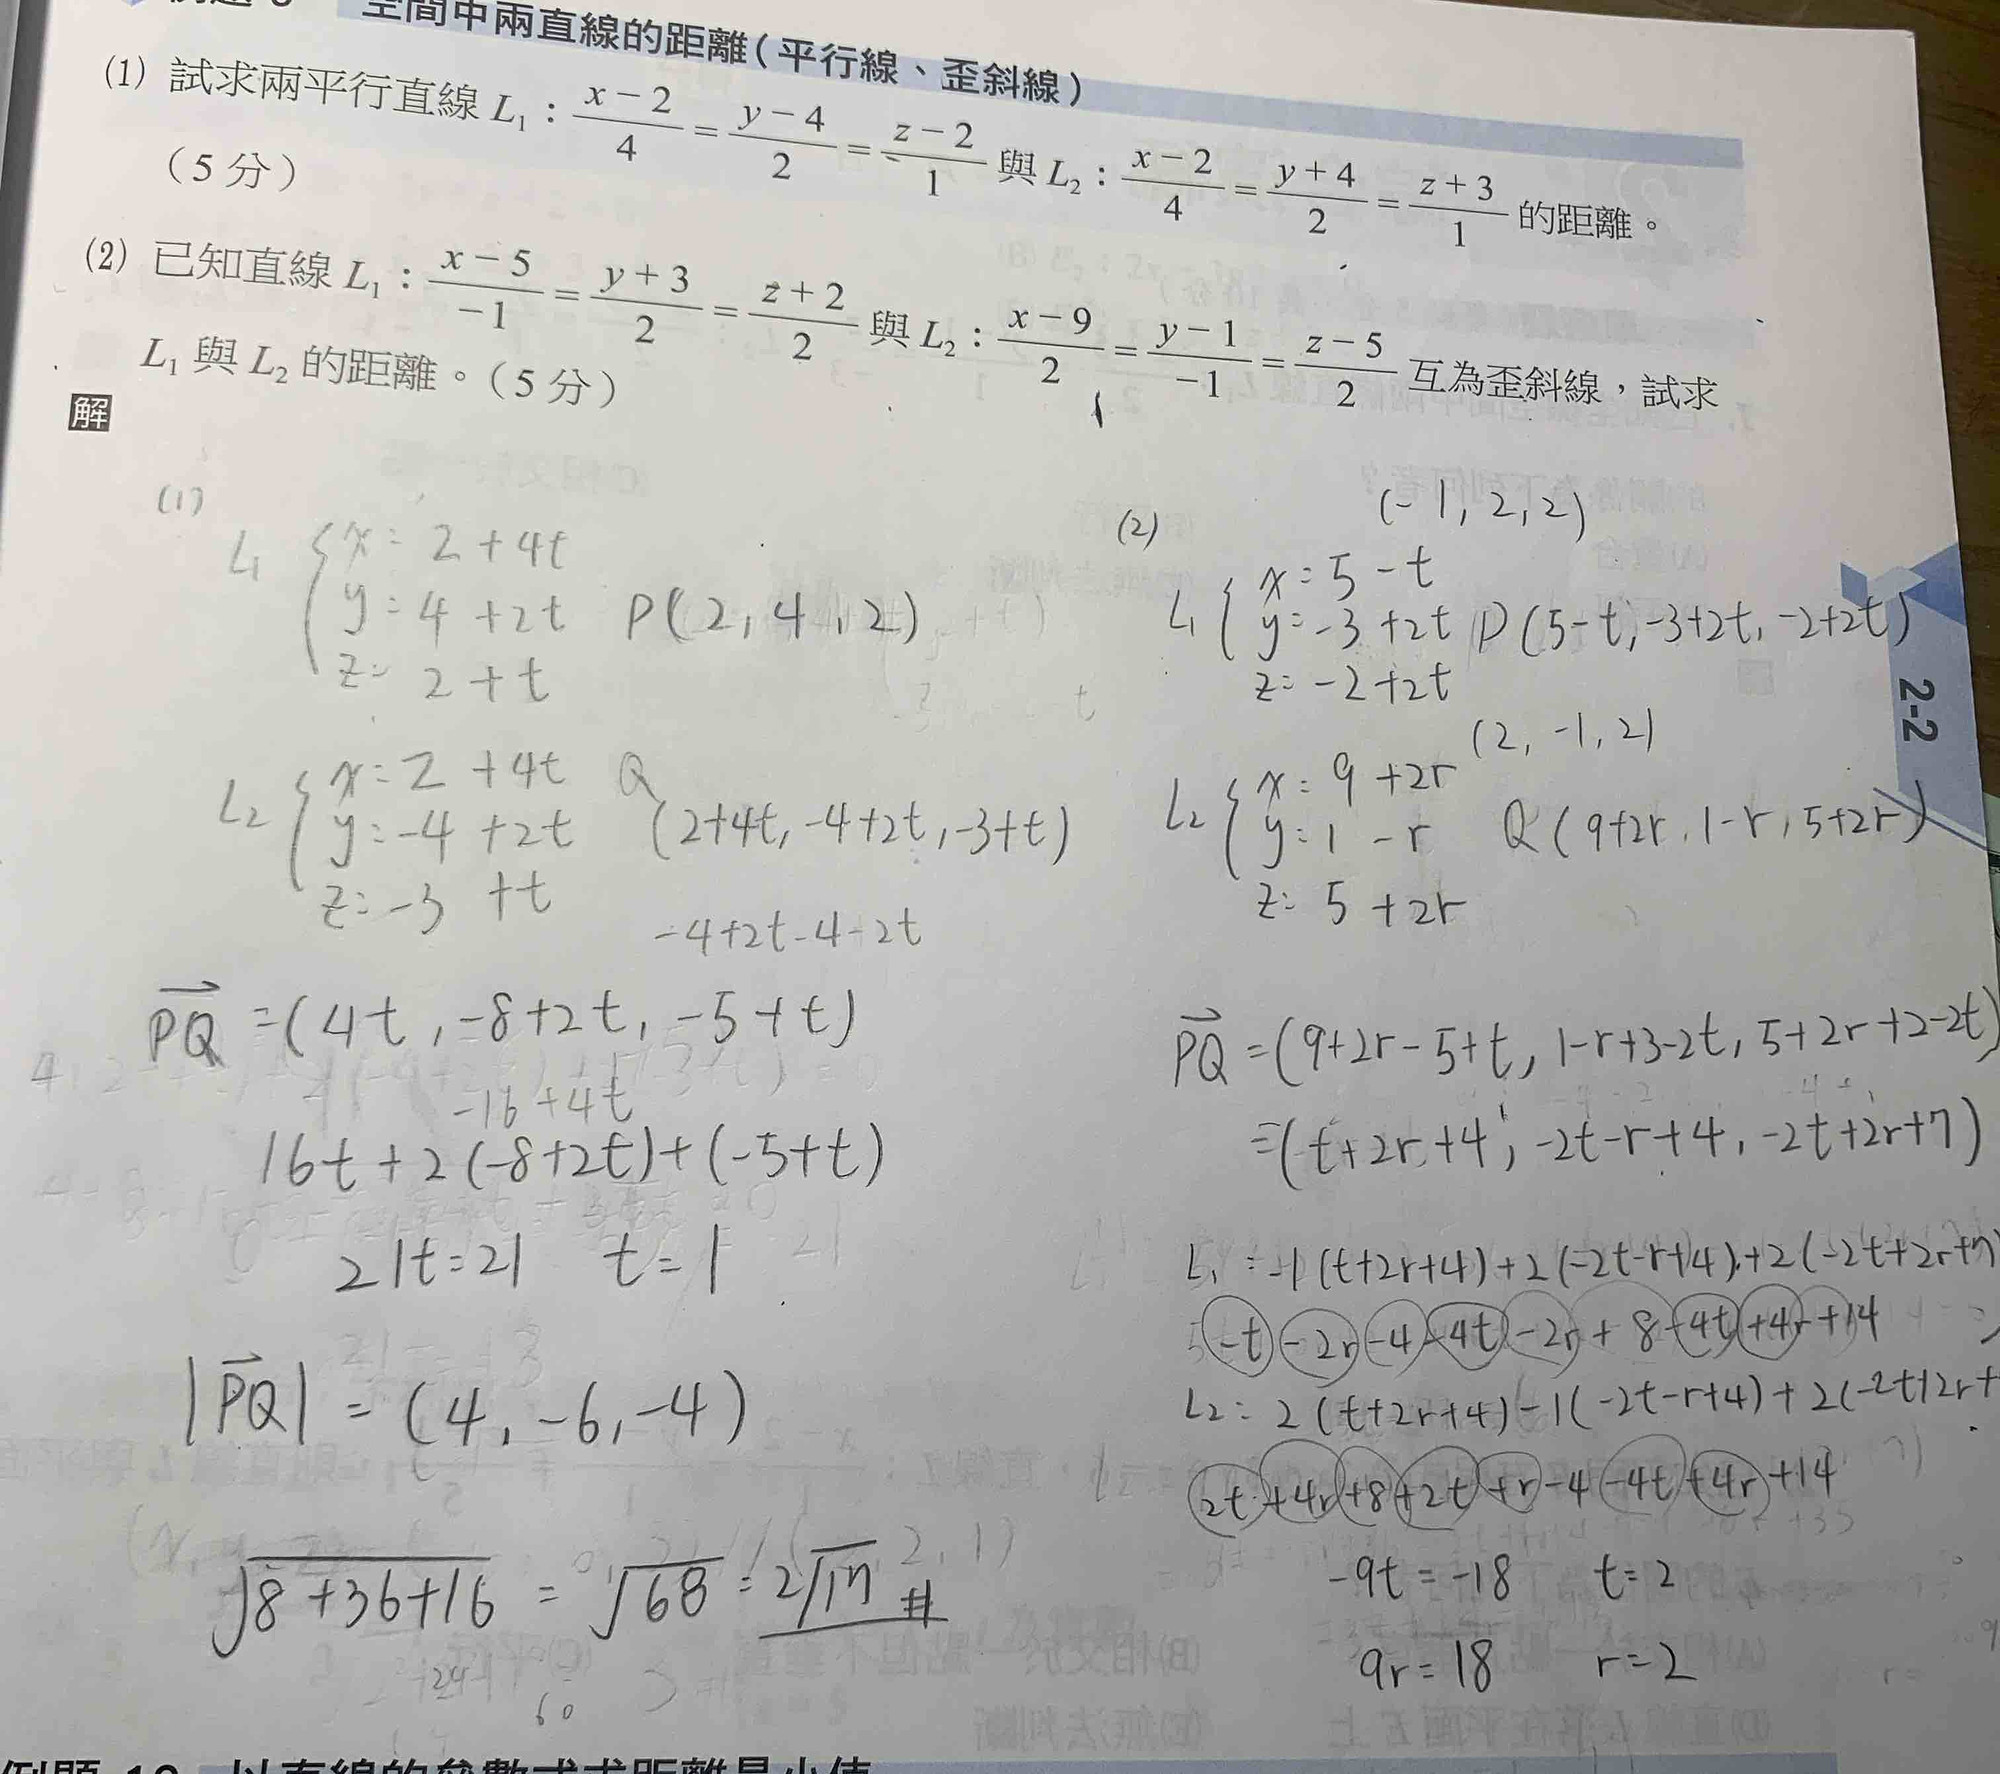 空間中兩直線的距離(平行線、歪斜線)
(1) 試求兩平行直線 L₁ : (x-2)/4 = (y-4)/2 = (z-2)/1 與 L₂ : (x-2)/4 = (y+4)/2 = (z+3)/1 的距離。
(5 分)
(2) 已知直線 L₁ : (x-5)/-1 = (y+3)/2 = (z+2)/2 與 L₂ : (x-9)/2 = (y-1)/-1 = (z-5)/2 互為歪斜線,試求
L₁ 與 L₂ 的距離。(5 分)
解
(1)
L₁ { x = 2 + 4t
y = 4 + 2t P(2, 4, 2)
z = 2 + t
L₂ { x = 2 + 4t Q
y = -4 + 2t (2+4t, -4+2t, -3+t)
z = -3 + t
-4+2t-4-2t
PQ = (4t, -8+2t, -5+t)
-16+4t
16t + 2(-8+2t) + (-5+t)
21t = 21 t = 1
|PQ| = (4, -6, -4)
√8+36+16 = √68 = 2√17 #
60
(2) (-1, 2, 2)
L₁ { x = 5 - t
y = -3 + 2t P(5-t, -3+2t, -2+2t)
z = -2 + 2t
(2, -1, 2)
L₂ { x = 9 + 2r
y = 1 - r Q(9+2r, 1-r, 5+2r)
z = 5 + 2r
PQ = (9+2r-5+t, 1-r+3-2t, 5+2r+2-2t)
= (t+2r+4, -2t-r+4, -2t+2r+7)
L₁ = -1(t+2r+4)+2(-2t-r+4)+2(-2t+2r+7)
-t-2r-4-4t-2r+8-4t+4r+14
L₂ = 2(t+2r+4)-1(-2t-r+4)+2(-2t+2r+
2t+4r+8+2t+r-4-4t+4r+14
-9t = -18 t = 2
9r = 18 r = 2
2-2
以直線的參數式求距離最小值